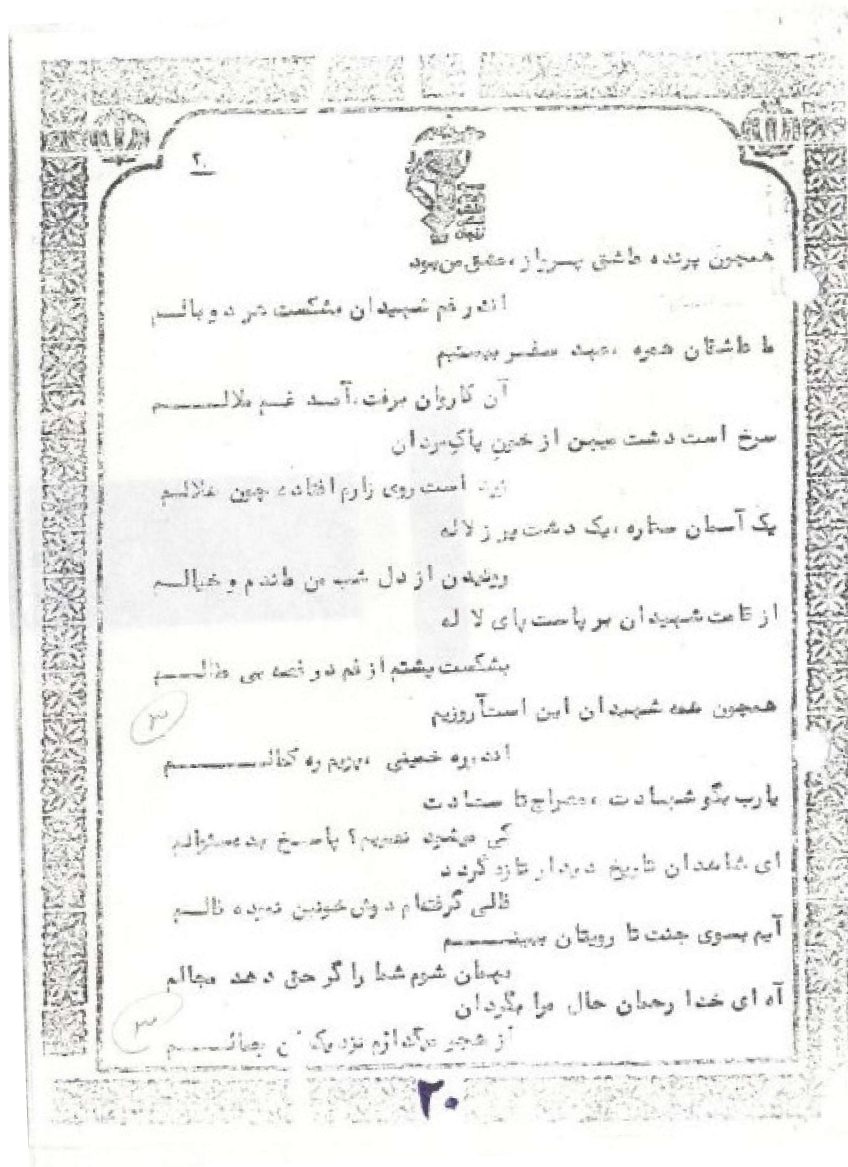 ۲۰
همچون پرنده عاشق پرواز، عشق من بود
اندر غم شهیدان بشکست هر دو بالــم
با عاشقان همره، عهد سفــر ببستیم
آن کاروان برفت، آمــد غــم ملالــــــم
سرخ است دشت میهن از خون پاک مردان
زرد است روی زارم افتاده چون هلالــم
یک آسمان ستاره، یک دشت پر ز لاله
از دل شب من ماندم و خیالــم
از قامت شهیدان بر پاست پای لاله
بشکست پشتم از غم در غمه بی
همچون همه شهیدان این است آروزیم
۳
اندر ره خمینی، ره کمالــــــــم
یارب بگو شهادت، معراج تا سعادت
کی میشود نصیبم؟ پاســخ بده سئوالــم
ای شاهدان تاریخ دیدار تازه گردد
فالی گرفته‌ام دوش خونین فالــم
آیم بسوی جنت تا رویتان ببینــــــم
مهمان شوم شما را گر حق دهد مجالم
آه ای خدا رحمان حال مرا بگردان
۳
از هجر نزدیک
۲۰